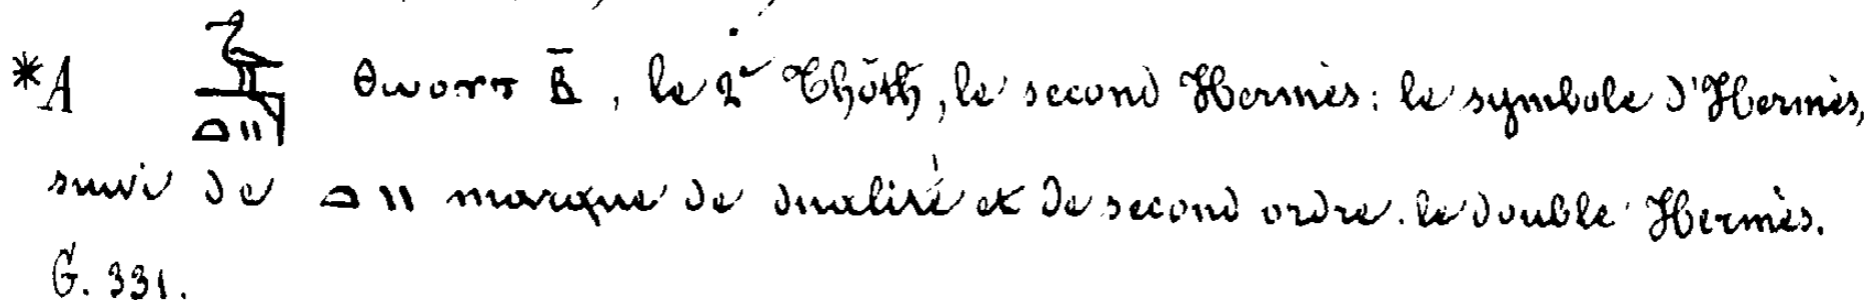 *A 𓅝𓏏𓏭 ⲑⲱⲟⲩⲧ ⲃ̅, le 2e Thôth, le second Hermès: le symbole d'Hermès,
suivi de 𓏏𓏭 marque de dualité et de second ordre. le double Hermès.
G. 331.